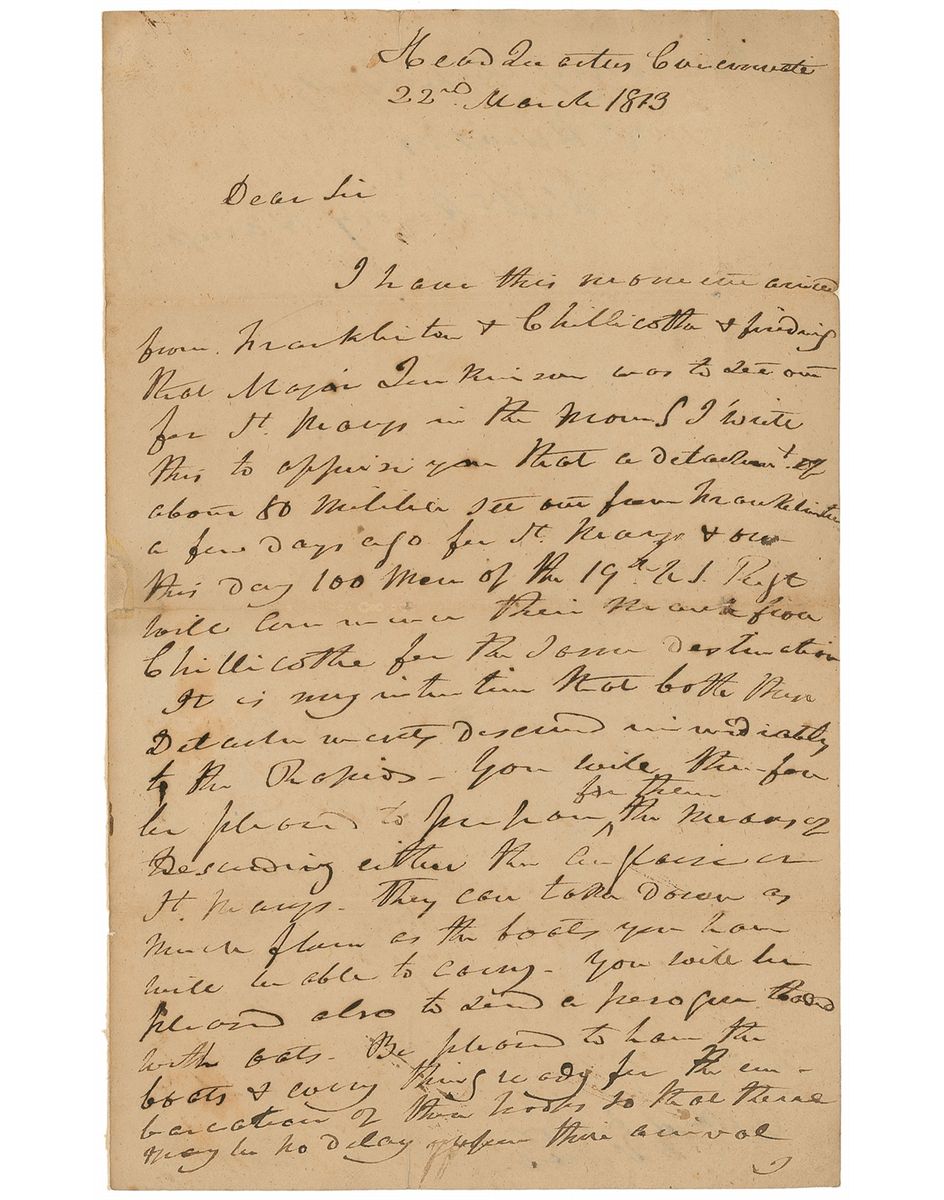 Head Quarters Cincinnati
22nd March 1813
Dear Sir
I have this moment arrived
from Franklinton & Chillicothe & finding
that Major Jenkinson was to set out
for St. Marys in the morng I write
this to apprise you that a detachmt. of
about 80 Militia set out from Franklinton
a few days ago for St. Marys & on
this day 100 Men of the 19th U S. Regt
will commence their March from
Chillicothe for the same destination
It is my intention that both these
Detachments descend immediately
to the Rapids - You will therefore
for them
be pleased to prepare ^ the means of
Descending either the Auglaize or
St. Marys - They can take down as
much flour as the boats you have
will be able to carry - You will be
pleased also to send a perogue loaded
with oats - Be pleased to have the
boats & every thing ready for the em-
barcation of these troops so that there
may be no delay after their arrival